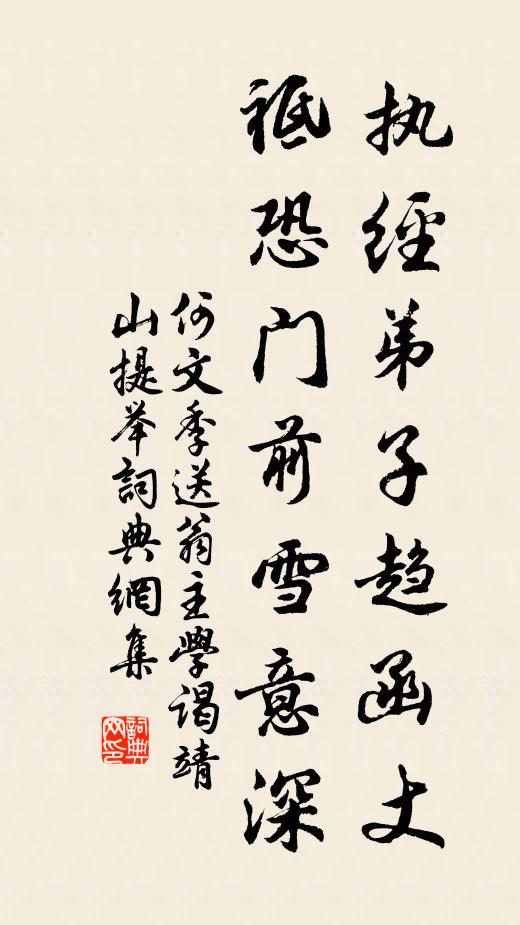 执經弟子趋函丈
祗恐门前雪意深
何文季送翁主學谒靖
山提举詞典網集
詞典网印